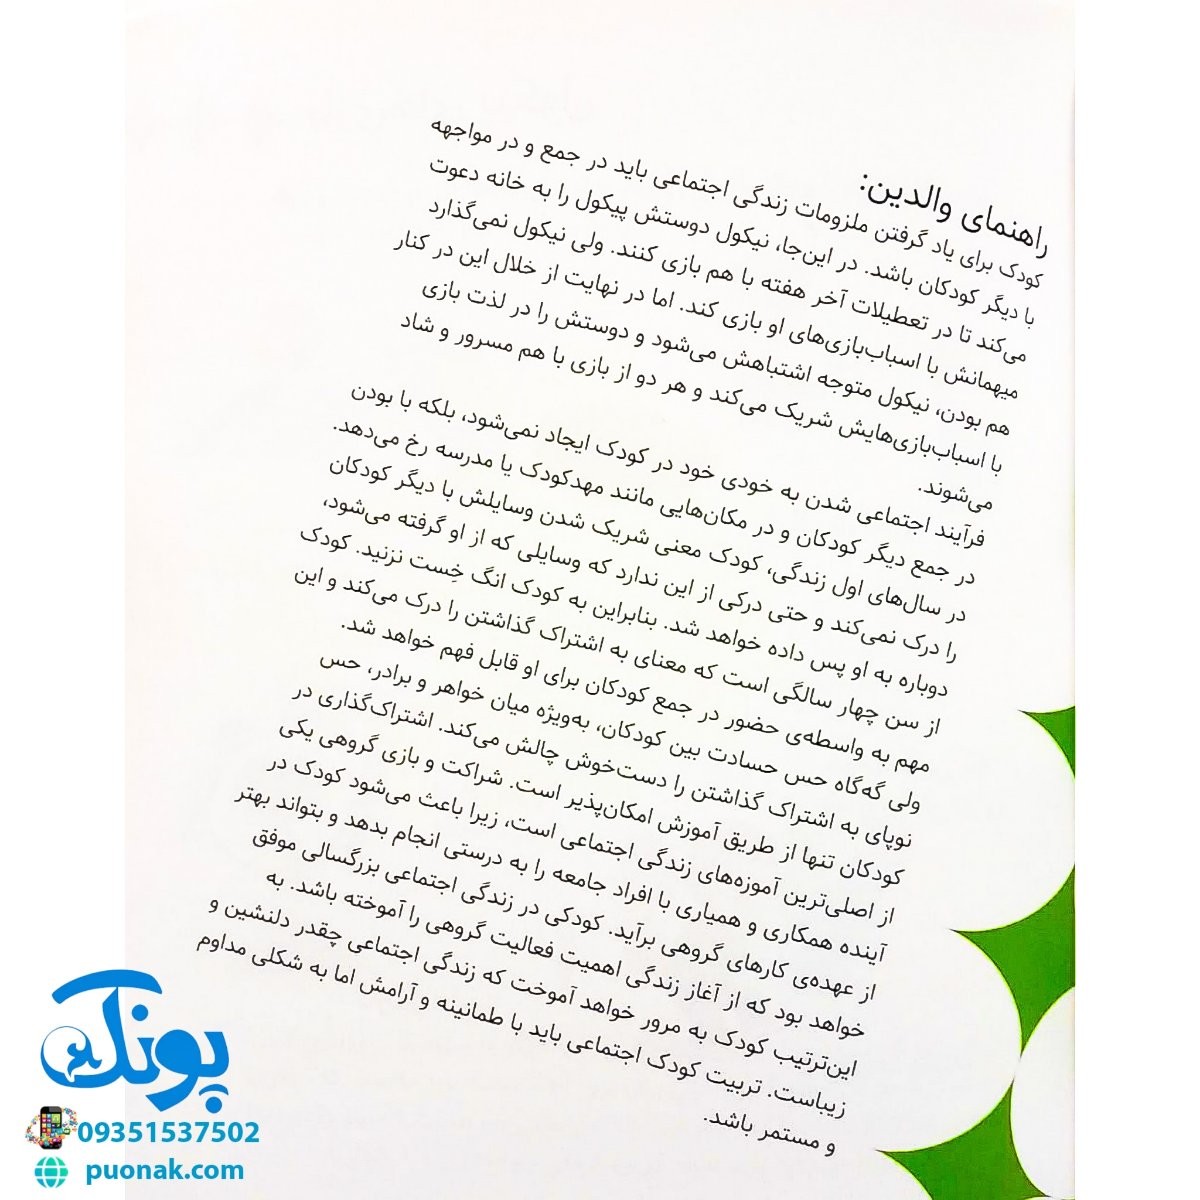 راهنمای والدین:
کودک برای یاد گرفتن ملزومات زندگی اجتماعی باید در جمع و در مواجهه
با دیگر کودکان باشد. در این‌جا، نیکول دوستش پیکول را به خانه دعوت
می‌کند تا در تعطیلات آخر هفته با هم بازی کنند. ولی نیکول نمی‌گذارد
میهمانش با اسباب‌بازی‌های او بازی کند. اما در نهایت از خلال این در کنار
هم بودن، نیکول متوجه اشتباهش می‌شود و دوستش را در لذت بازی
با اسباب‌بازی‌هایش شریک می‌کند و هر دو از بازی با هم مسرور و شاد
می‌شوند.
فرآیند اجتماعی شدن به خودی خود در کودک ایجاد نمی‌شود، بلکه با بودن
در جمع دیگر کودکان و در مکان‌هایی مانند مهدکودک یا مدرسه رخ می‌دهد.
در سال‌های اول زندگی، کودک معنی شریک شدن وسایلش با دیگر کودکان
را درک نمی‌کند و حتی درکی از این ندارد که وسایلی که از او گرفته می‌شود،
دوباره به او پس داده خواهد شد. بنابراین به کودک انگ خِست نزنید. کودک
از سن چهار سالگی است که معنای به اشتراک گذاشتن را درک می‌کند و این
مهم به واسطه‌ی حضور در جمع کودکان برای او قابل فهم خواهد شد.
ولی گه‌گاه حس حسادت بین کودکان، به‌ویژه میان خواهر و برادر، حس
نوپای به اشتراک گذاشتن را دست‌خوش چالش می‌کند. اشتراک‌گذاری در
کودکان تنها از طریق آموزش امکان‌پذیر است. شراکت و بازی گروهی یکی
از اصلی‌ترین آموزه‌های زندگی اجتماعی است، زیرا باعث می‌شود کودک در
آینده همکاری و همیاری با افراد جامعه را به درستی انجام بدهد و بتواند بهتر
از عهده‌ی کارهای گروهی برآید. کودکی در زندگی اجتماعی بزرگسالی موفق
خواهد بود که از آغاز زندگی اهمیت فعالیت گروهی را آموخته باشد. به
این‌ترتیب کودک به مرور خواهد آموخت که زندگی اجتماعی چقدر دلنشین و
زیباست. تربیت کودک اجتماعی باید با طمانینه و آرامش اما به شکلی مداوم
و مستمر باشد.
پونک
09351537502
puonak.com